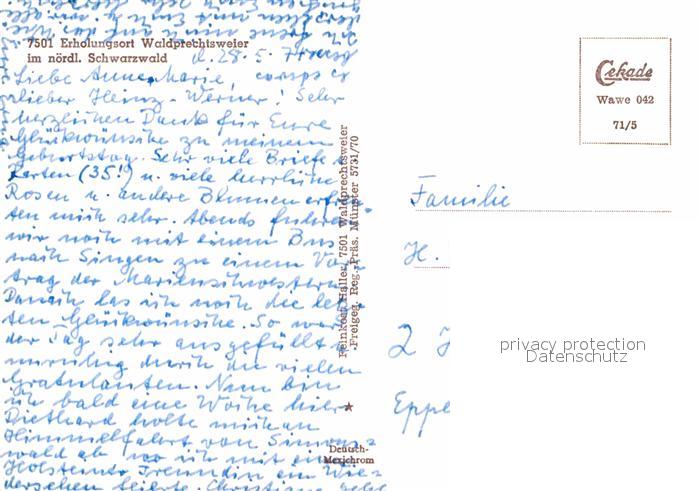 7501 Erholungsort Waldprechtsweier
im nördl. Schwarzwald
d. 28. 5.
Liebe Annemarie,
lieber Heinz-Werner! Sehr
herzlichen Dank für Eure
Glückwünsche zu meinem
Geburtstag. Sehr viele Briefe
Karten (35!) u. viele herrliche
Rosen u. andere Blumen erfreu
ten mich sehr. Abends fuhren
wir noch mit einem Bus
nach Singen zu einem Vor
trag der Marienschwestern
Danach las ich noch die letz
ten Glückwünsche. So war
der Tag sehr ausgefüllt
unruhig durch die vielen
Gratulanten. Nun bin
ich bald eine Woche hier
Diethard holte mich an
Himmelfahrt von
wald ab wo ich mit einer
Holsteiner Freundin ein Wie
dersehen feierte. Christiane
Feinkost Haller, 7501 Waldprechtsweier
Freigeg. Reg.-Präs. Münster 5731/70
Deutsch-
Mexichrom
Cekade
Wawe 042
71/5
Familie
H.
2
Eppe
privacy protection
Datenschutz